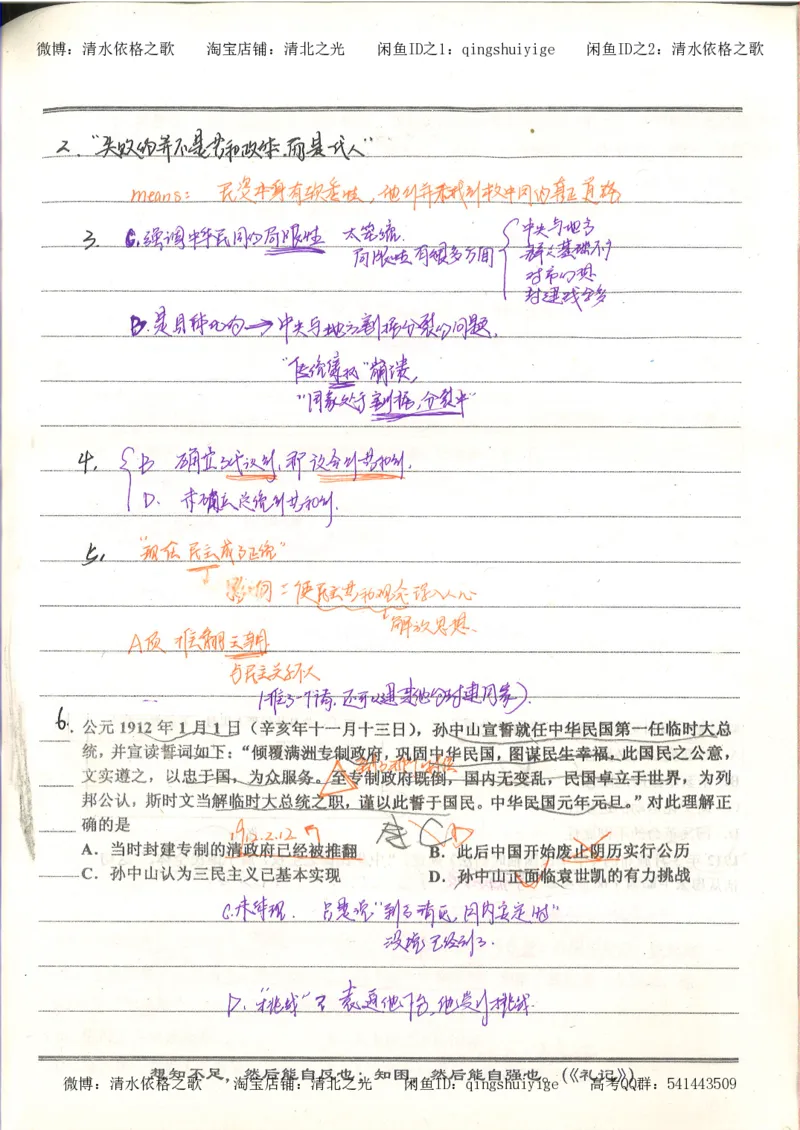 微博：清水依格之歌 淘宝店铺：清北之光 闲鱼ID之1：qingshuiyige 闲鱼ID之2：清水依格之歌
2. “失败的并不是共和政体，而是代人”
means: 民资本身有软弱性，他们并未找到救中国的真正道路
3. C.强调中华民国的局限性 太笼统.
局限性有很多方面
中央与地方
群众基础不
对帝幻想
封建残余多
B.是具体化的→中央与地方割据分裂的问题.
“传统集权”崩溃,
“国家处于割据,分裂中”
4. B 确立了代议制,即议会制共和制.
D. 未确立总统制共和制.
5. “现在民主成了正统”
影响=使民主共和观念深入人心
解放思想.
A项 推翻王朝
与民主关系不大
(推了一个清,还可以建其他的封建国家).
6. 公元 1912 年 1 月 1 日（辛亥年十一月十三日），孙中山宣誓就任中华民国第一任临时大总
统，并宣读誓词如下：“倾覆满洲专制政府，巩固中华民国，图谋民生幸福，此国民之公意，
文实遵之，以忠于国，为众服务。至专制政府既倒，国内无变乱，民国卓立于世界，为列
邦公认，斯时文当解临时大总统之职，谨以此誓于国民。中华民国元年元旦。”对此理解正
确的是
1912.2.12
A．当时封建专制的清政府已经被推翻 B．此后中国开始废止阴历实行公历
C．孙中山认为三民主义已基本实现 D．孙中山正面临袁世凯的有力挑战
C.未体现. 只是说“到了清亡,国内安定时”
没说已经到了.
D. “挑战”? 袁逼他下台,他受到挑战.
想知不足，然后能自反也；知困，然后能自强也。(《礼记》)
微博：清水依格之歌 淘宝店铺：清北之光 闲鱼ID：qingshuiyige 高考QQ群：541443509